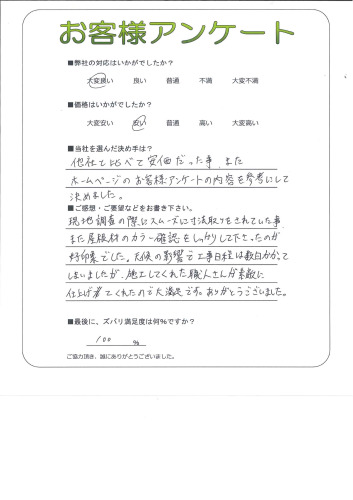 お客様アンケート
■弊社の対応はいかがでしたか？
大変良い 良い 普通 不満 大変不満
■価格はいかがでしたか？
大変安い 安い 普通 高い 大変高い
■当社を選んだ決め手は？
他社と比べて安価だった事、また
ホームページのお客様アンケートの内容を参考にして
決めました。
■ご感想・ご要望などをお書き下さい。
現地調査の際にスムーズに寸法取りをされていた事、
また屋根材のカラー確認をしっかりして下さったのが
好印象でした。天候の影響で工事日程は数日かかって
しまいましたが、施工してくれた職人さんが素敵に
仕上げてくれたので大満足です。ありがとうございました。
■最後に、ズバリ満足度は何%ですか？
100 %
ご協力頂き、誠にありがとうございました。